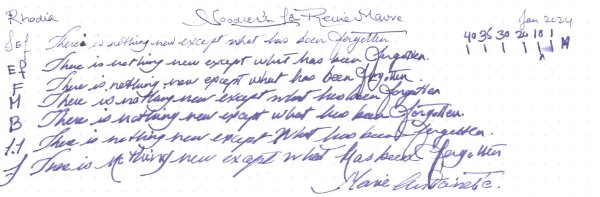 Rhodia
Noodler's La Reine Mauve
Jan 2024
40 35 30 20 10 1 M
Sef There is nothing new except what has been forgotten.
EF There is nothing new except what has been forgotten.
F There is nothing new except what has been forgotten
M There is nothing new except what has been forgotten
B There is nothing new except what has been forgotten.
1.1 There is nothing new except what has been forgotten.
f There is nothing new except what has been forgotten
Marie Antoinette.